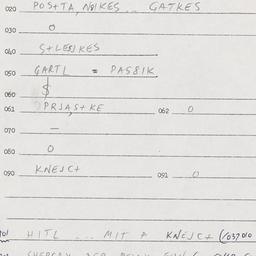 020 POS+TA, NDIKES .. GATKES
030 O
040 S+LEDIKES
050 GARTL = PASSIK
060 $
061 PRJAS+KE 062 O
070 —
080 O
090 KNEJC+ 091 O
HITL ... MIT A KNEJC+ (/037010